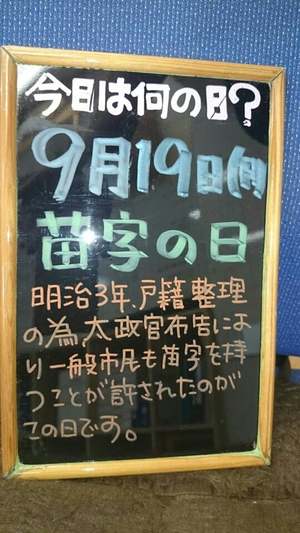 今日は何の日?
9月19日(月)
苗字の日
明治3年、戸籍整理
の為、太政官布告によ
り一般市民も苗字を持
つことが許されたのが
この日です。